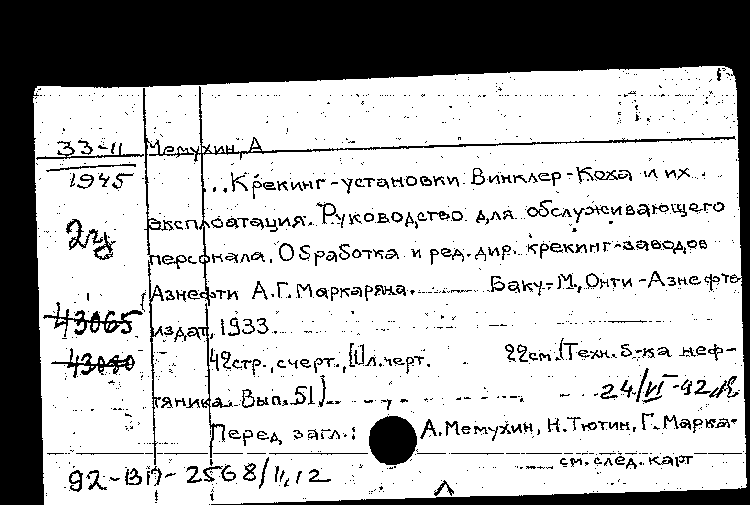 П.
33-11 Мемухин, А
1945 ...Крекинг-установки Винклер-Коха и их
эксплоатация. Руководство для обслуживающего
2ц персонала. Обработка и ред. дир. крекинг-заводов
Азнефти А.Г. Маркаряна. Баку-М., Онти-Азнефте
43065 издат, 1933.
43080 42стр., счерт., [1]л.черт. 22см. (Техн. б-ка неф-
тяника. Вып. 51) 24/VI-92
Перед загл.: А.Мемухин, Н.Тютин, Г.Марка-
см. след. карт
92-ВП-2568/11,12